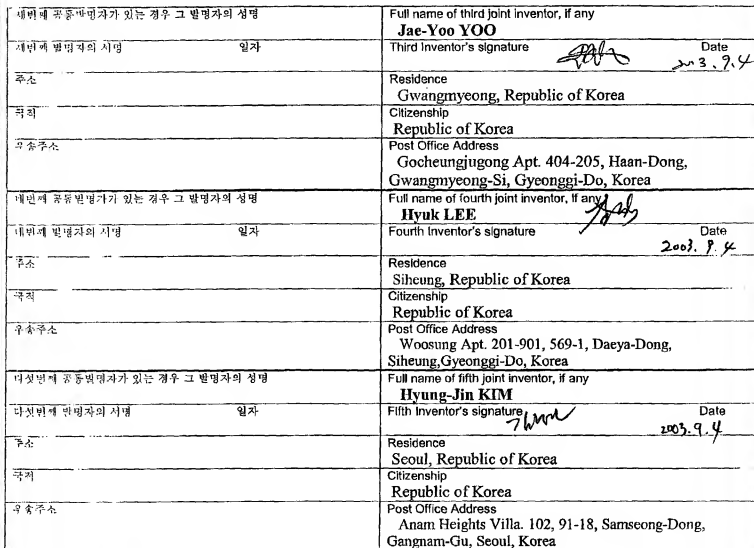 세번째 공동발명자가 있는 경우 그 발명자의 성명
Full name of third joint inventor, if any
Jae-Yoo YOO
세번째 발명자의 서명 일자
Third Inventor's signature Date
2003. 9. 4
주소
Residence
Gwangmyeong, Republic of Korea
국적
Citizenship
Republic of Korea
우송주소
Post Office Address
Gocheungjugong Apt. 404-205, Haan-Dong,
Gwangmyeong-Si, Gyeonggi-Do, Korea
네번째 공동발명자가 있는 경우 그 발명자의 성명
Full name of fourth joint inventor, if any
Hyuk LEE
네번째 발명자의 서명 일자
Fourth Inventor's signature Date
2003. 9. 4
주소
Residence
Siheung, Republic of Korea
국적
Citizenship
Republic of Korea
우송주소
Post Office Address
Woosung Apt. 201-901, 569-1, Daeya-Dong,
Siheung,Gyeonggi-Do, Korea
다섯번째 공동발명자가 있는 경우 그 발명자의 성명
Full name of fifth joint inventor, if any
Hyung-Jin KIM
다섯번째 발명자의 서명 일자
Fifth Inventor's signature Date
2003. 9. 4
주소
Residence
Seoul, Republic of Korea
국적
Citizenship
Republic of Korea
우송주소
Post Office Address
Anam Heights Villa. 102, 91-18, Samseong-Dong,
Gangnam-Gu, Seoul, Korea